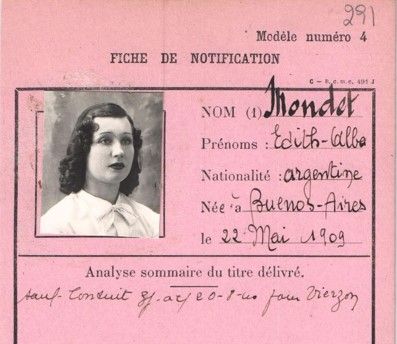 291
Modèle numéro 4
FICHE DE NOTIFICATION
NOM (1) Mondet
Prénoms : Edith-Alba
Nationalité : argentine
Née à Buenos-Aires
le 22 Mai 1909
Analyse sommaire du titre délivré.
sauf-conduit pour Vierzon